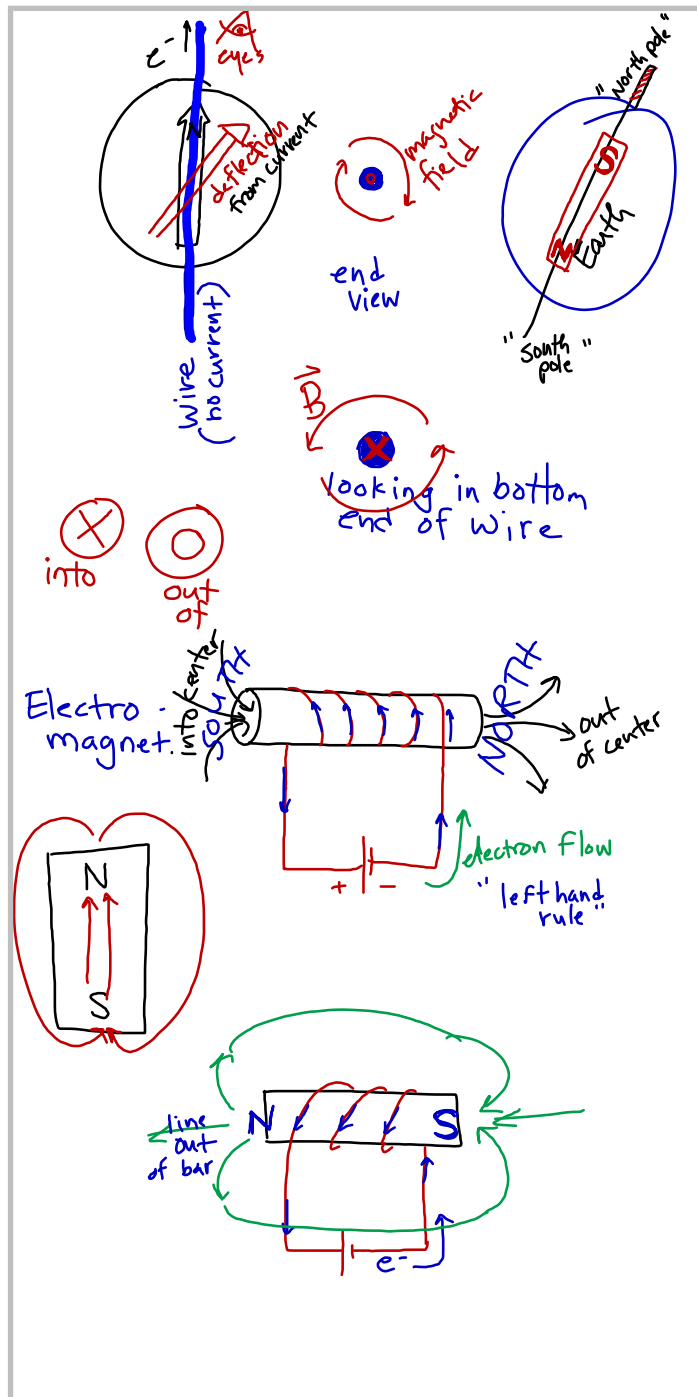 e-
eyes
N
deflection
from current
wire
(no current)
magnetic
field
end
view
"North pole"
S
N
Earth
"South
pole"
B
X
looking in bottom
end of wire
X
into
out
of
Electro-
magnet.
into center
SOUTH
NORTH
out
of center
+ -
electron flow
"left hand
rule"
N
S
N
S
line
out
of bar
e-